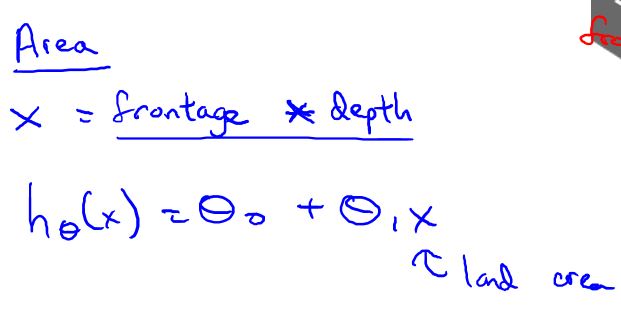 Area
x = frontage * depth
hθ(x) = θ₀ + θ₁x
↑ land area